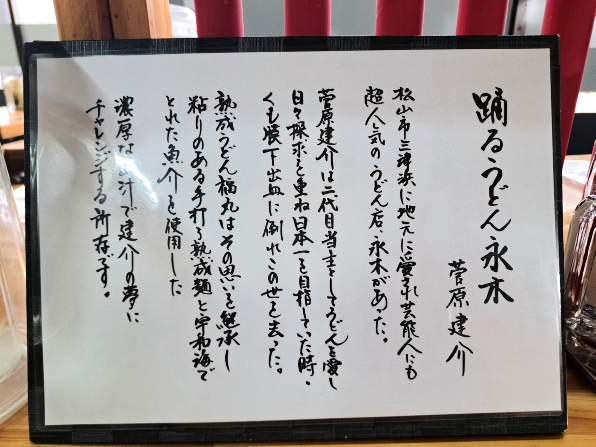 踊るうどん永木
菅原建介
松山市三津浜に地元に愛され芸能人にも
超人気のうどん店、永木があった。
菅原建介は二代目当主としてうどんを愛し
日々探求を重ね日本一を目指していた時、
くも膜下出血に倒れこの世を去った。
熟成うどん福丸はその思いを継承し
粘りのある手打ち熟成麺と宇和海で
とれた魚介を使用した
濃厚な汁で建介の夢に
チャレンジする所存です。